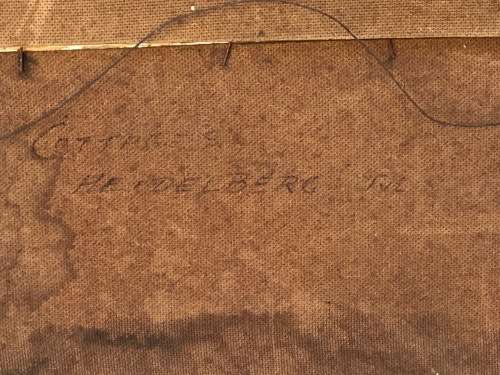 COTTAGES
HEIDELBERG TVL